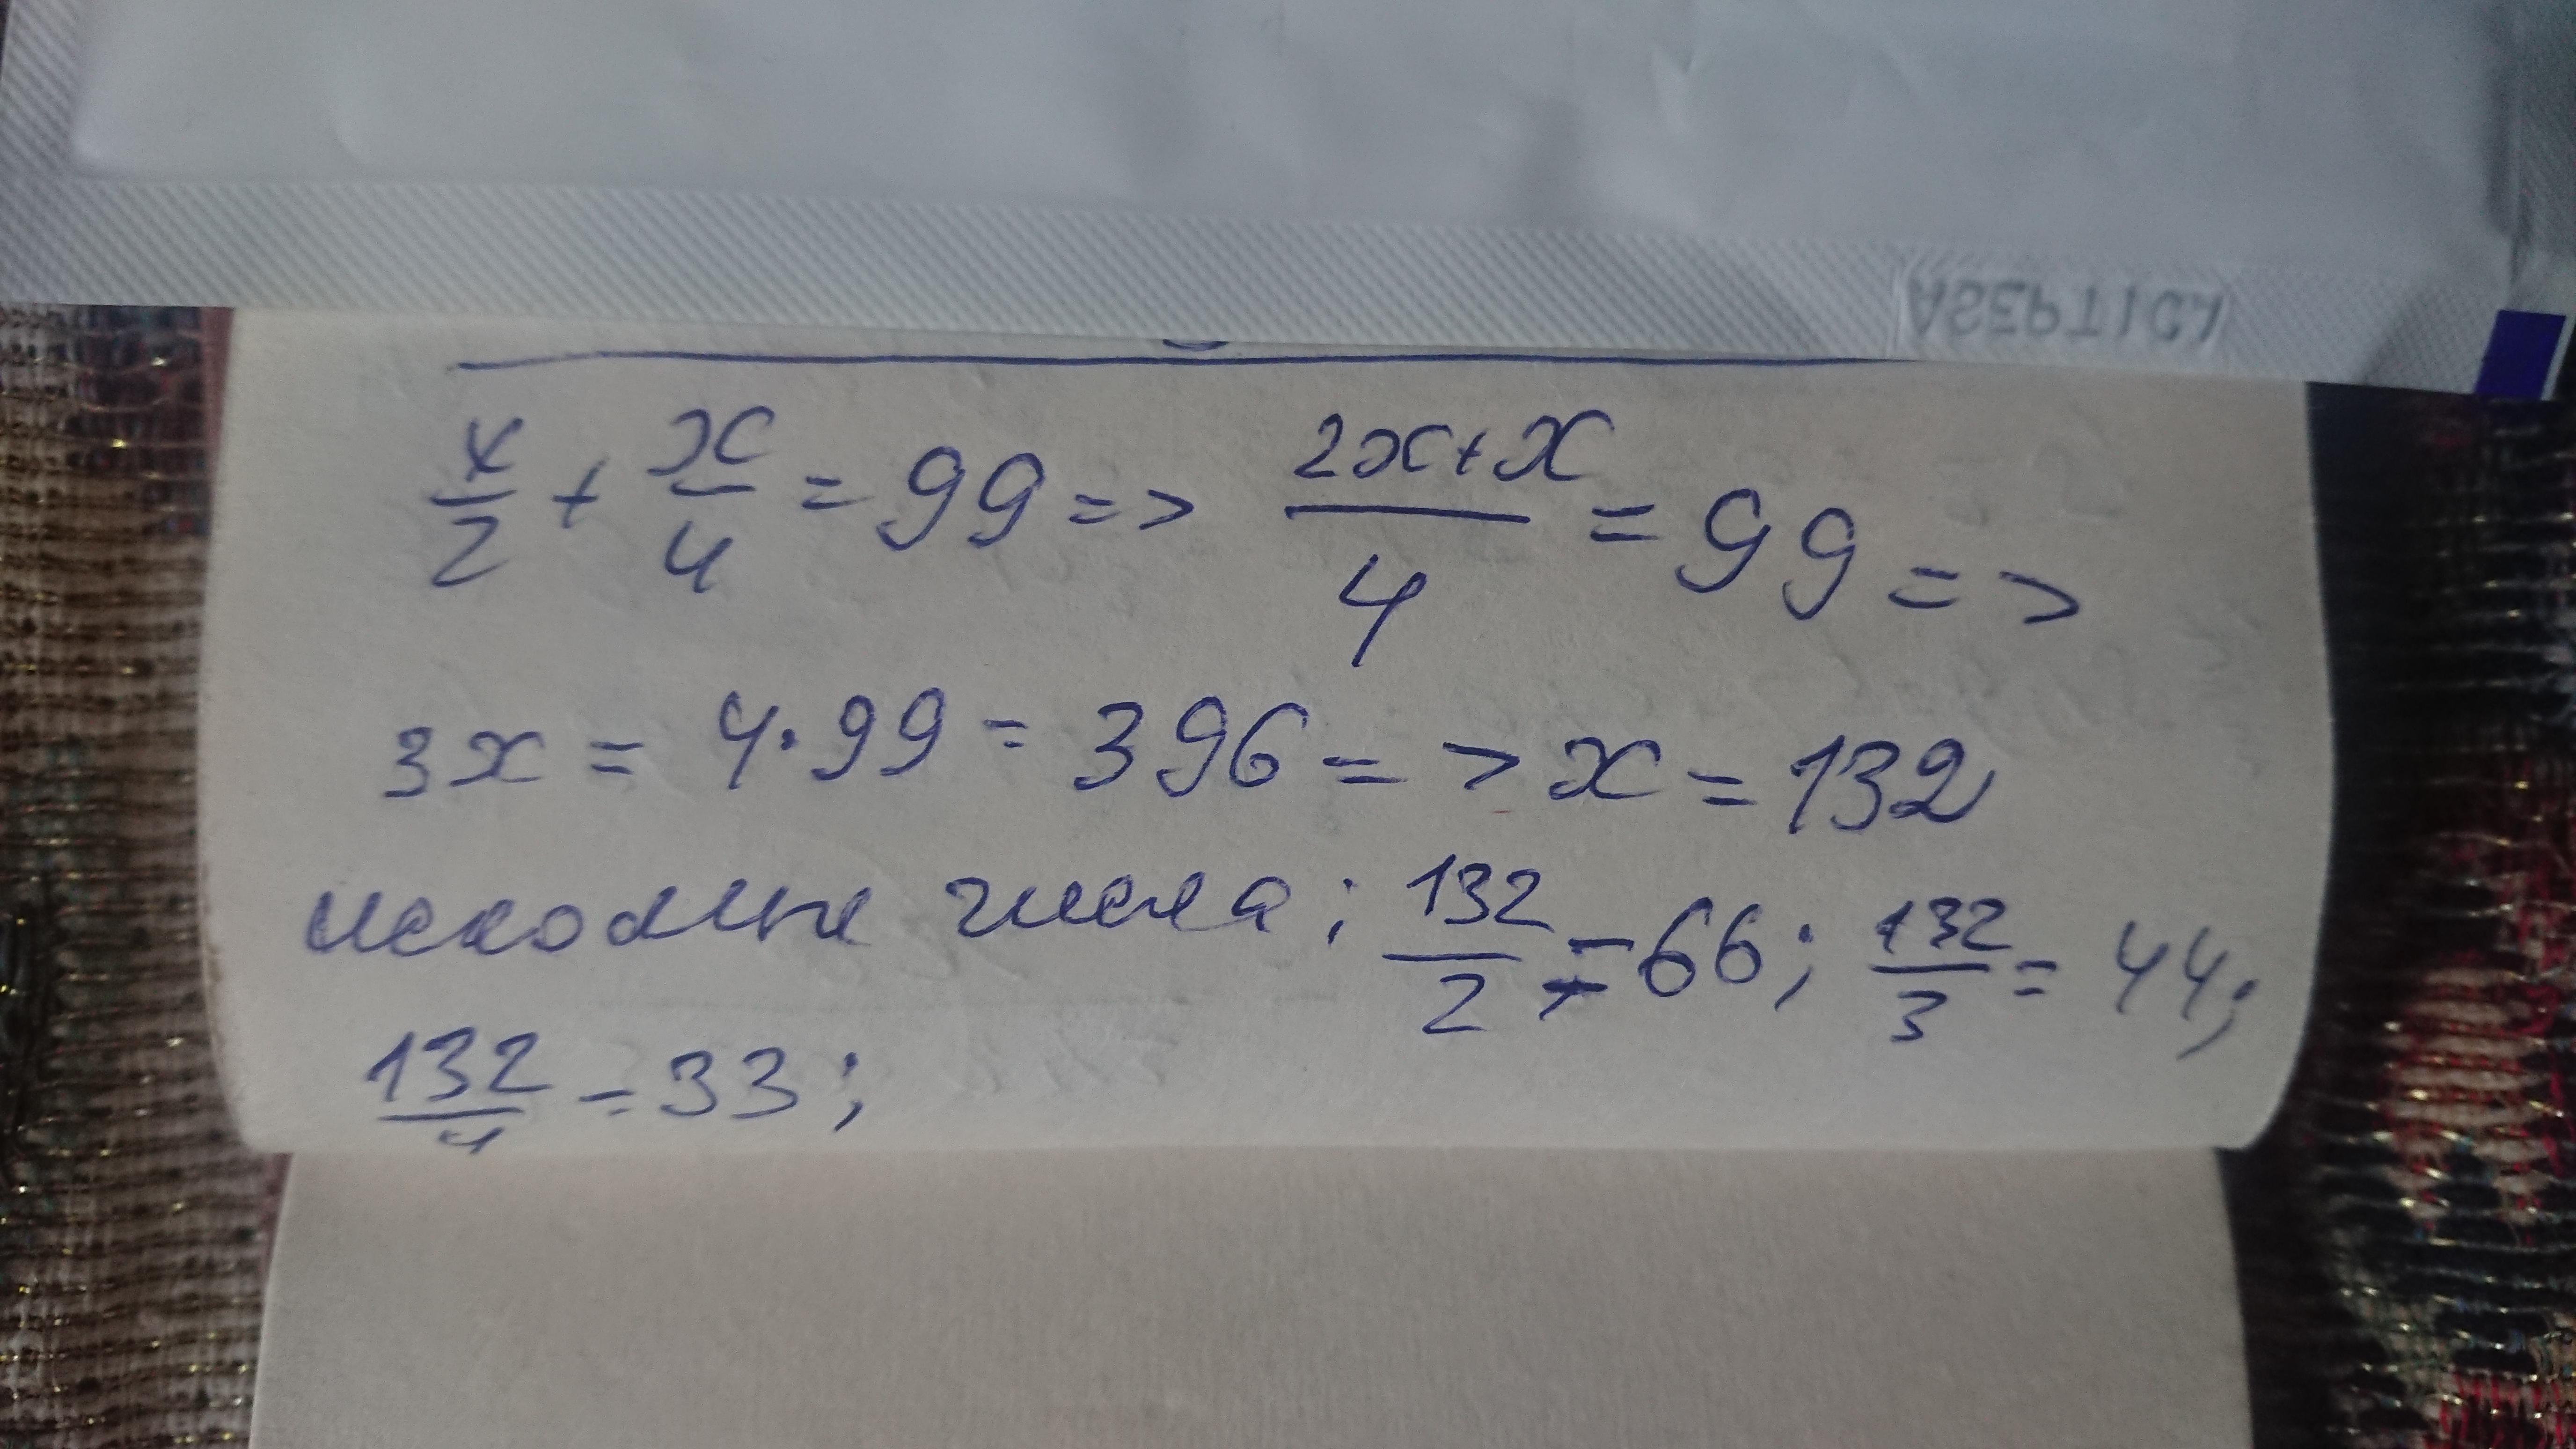 ASEPTICA
x/2 + x/4 = 99 => (2x+x)/4 = 99 =>
3x = 4·99 = 396 => x = 132
исходные числа: 132/2 = 66; 132/3 = 44;
132/4 = 33;